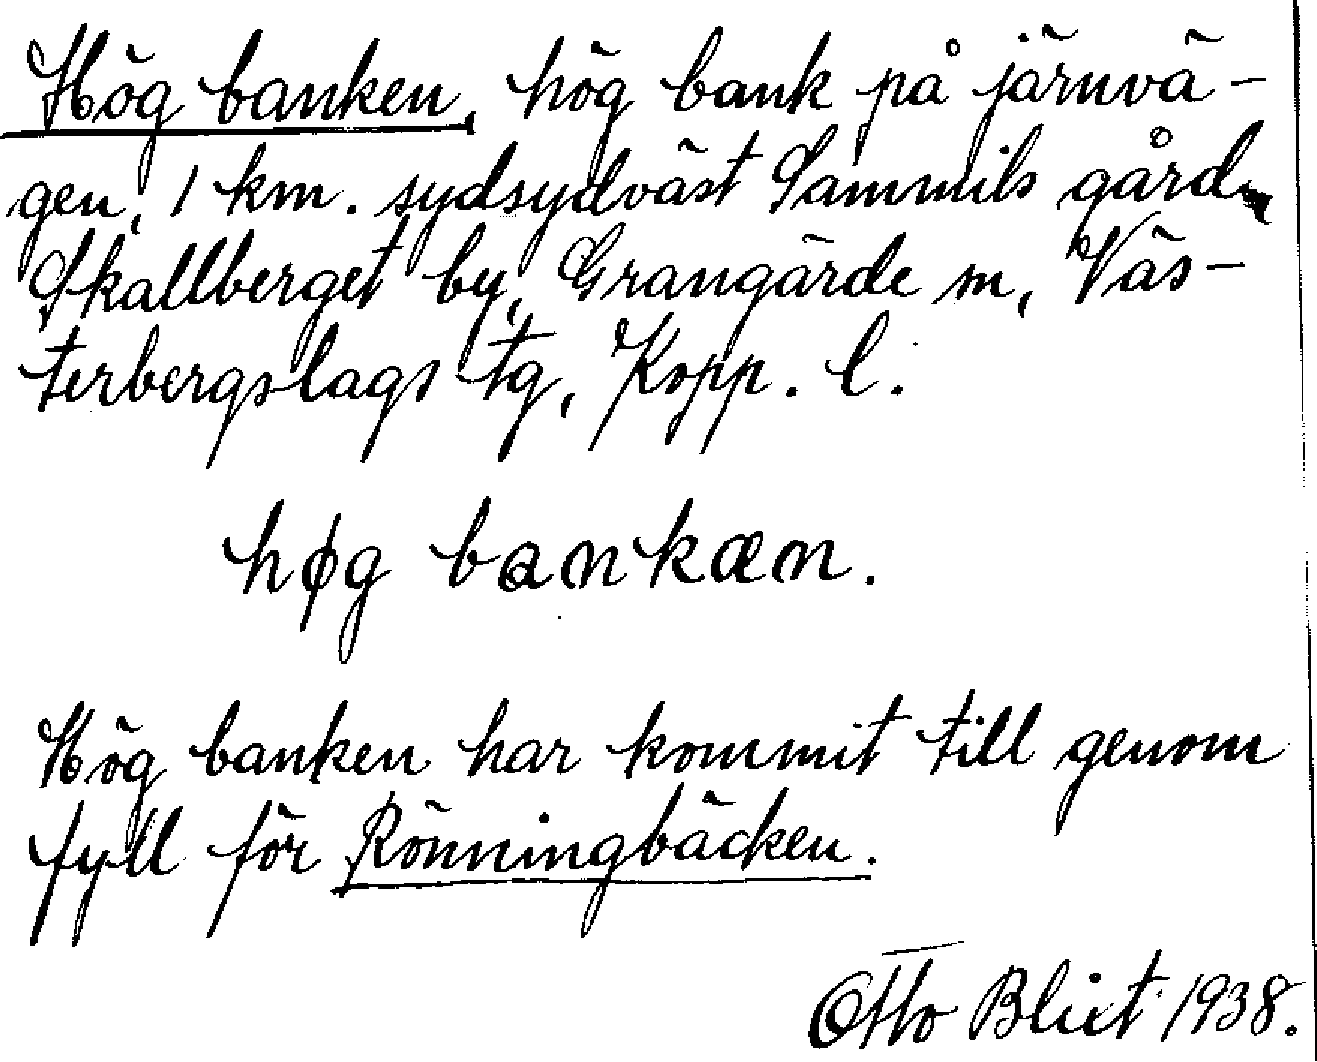 Hög banken, hög bank på järnvä-
gen, 1 km. sydsydväst Sammils gård,
Skallberget by, Grangärde sn, Väs-
terbergslags tg, Kopp. l.
høg bankæn.
Hög banken har kommit till genom
fyll för Rönningbäcken.
Otto Blixt 1938.